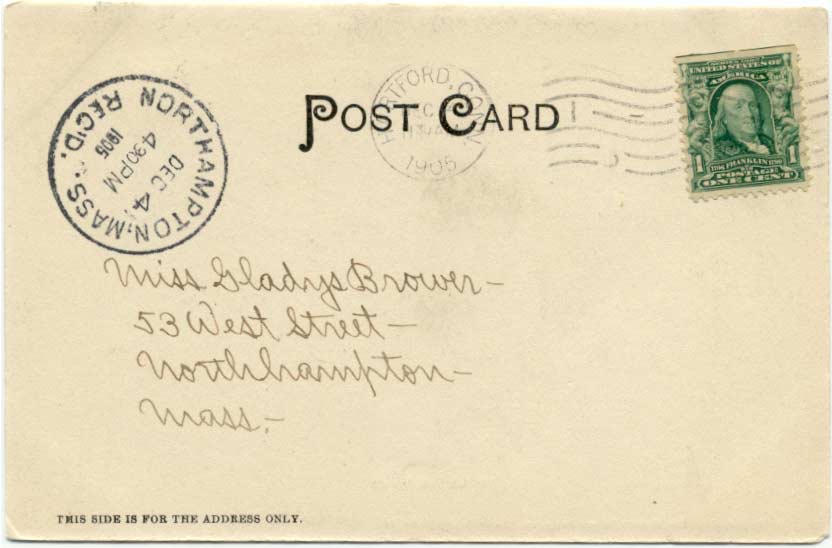 POST CARD
NORTHAMPTON, MASS.
REC'D.
DEC 4
4:30 PM
1905
HARTFORD, CONN.
1905
UNITED STATES OF
AMERICA
1 FRANKLIN 1
POSTAGE
ONE CENT
Miss Gladys Brower-
53 West Street-
Northhampton-
Mass.-
THIS SIDE IS FOR THE ADDRESS ONLY.